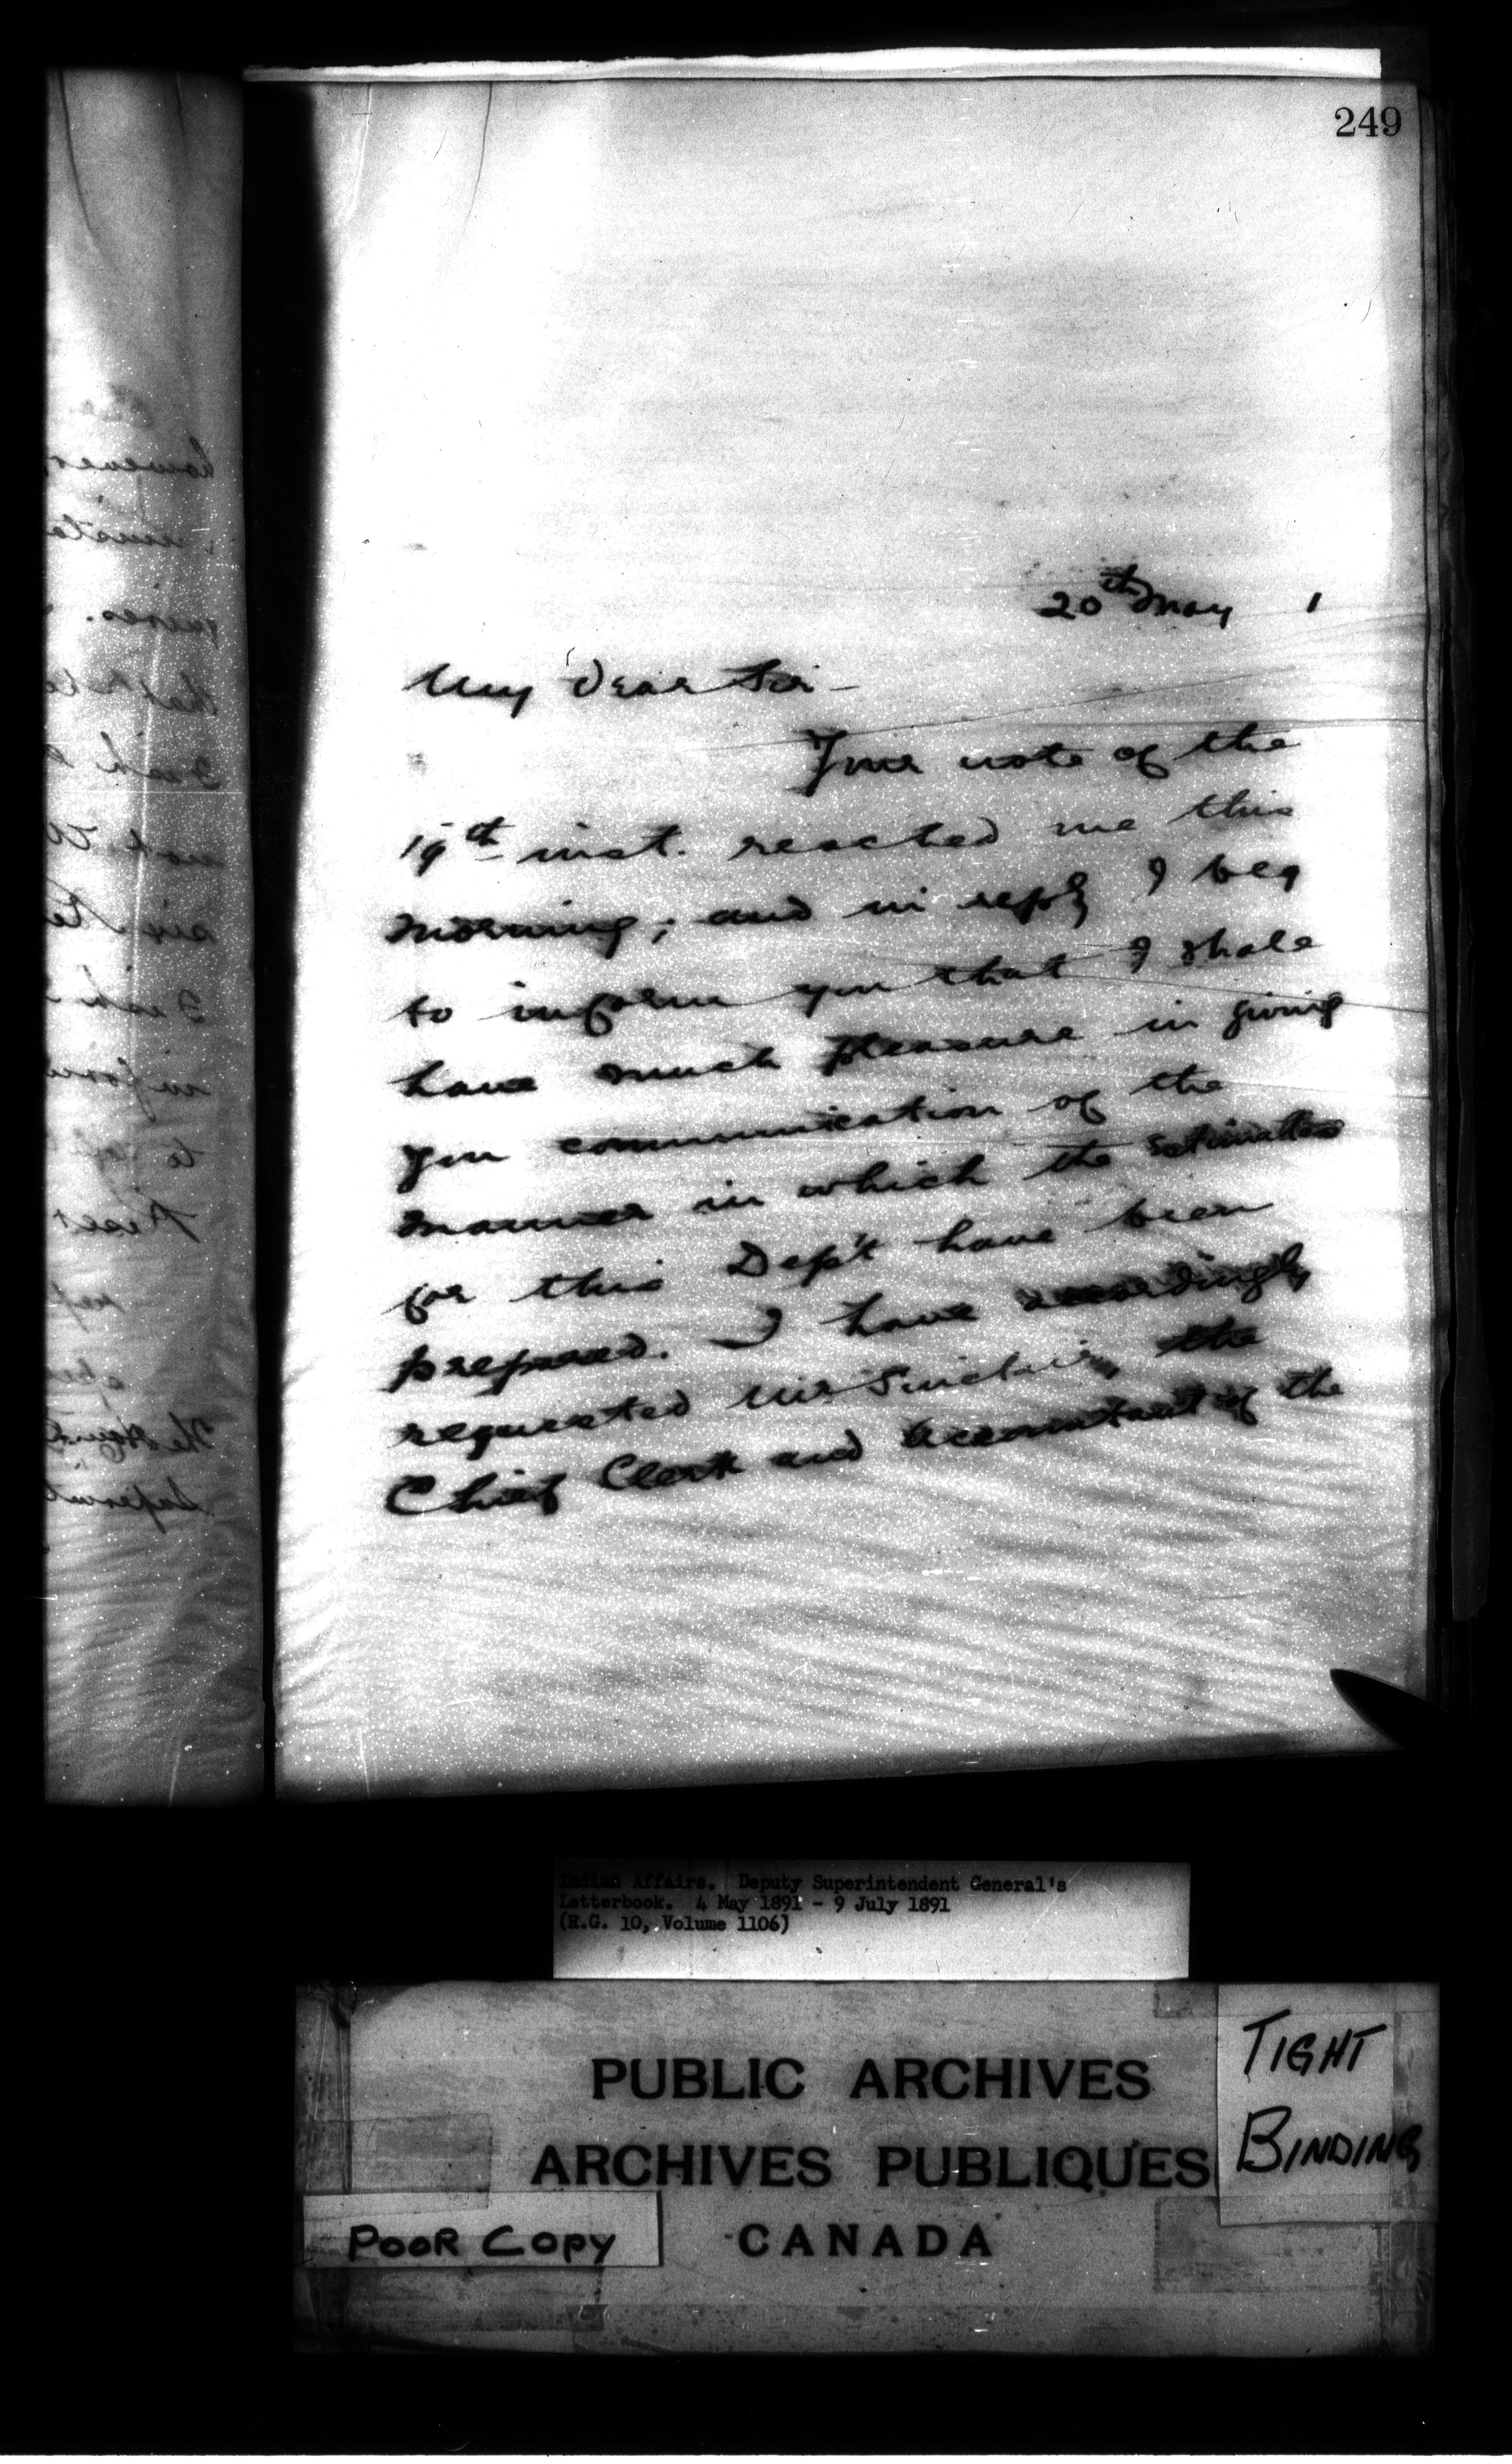 249
20th May 1
My Dear Sir -
Your note of the
19th inst. reached me this
morning; and in reply I beg
to inform you that I shall
have much pleasure in giving
you communication of the
manner in which the estimates
for this Dep't have been
prepared. I have accordingly
requested Mr Sinclair, the
Chief Clerk and Accountant of the
Indian Affairs. Deputy Superintendent General's
Letterbook. 4 May 1891 - 9 July 1891
(R.G. 10, Volume 1106)
PUBLIC ARCHIVES
ARCHIVES PUBLIQUES
CANADA
TIGHT
BINDING
POOR COPY